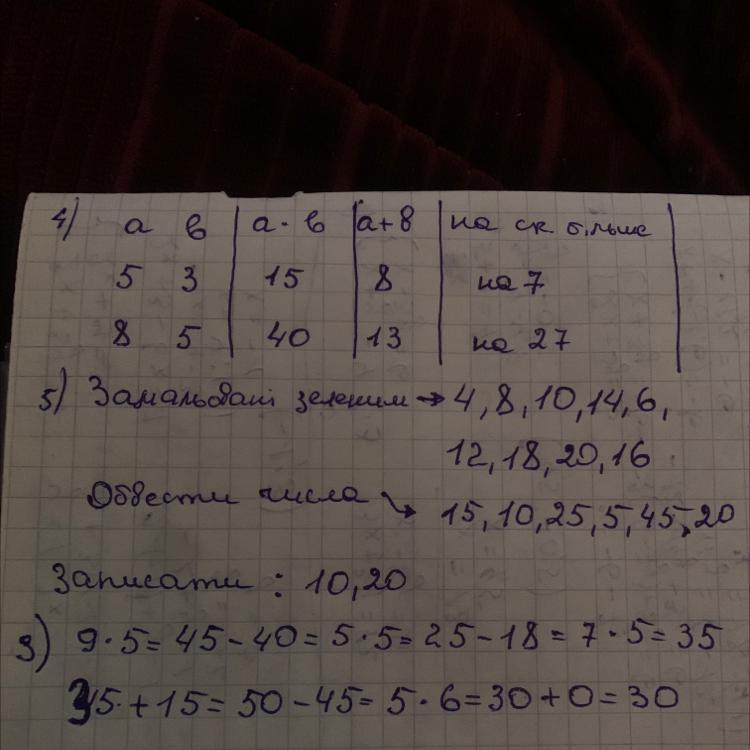 4) а в а · в а+в на ск більше
5 3 15 8 на 7
8 5 40 13 на 27
5) Замальовані зеленим → 4, 8, 10, 14, 6,
12, 18, 20, 16
Обвести числа → 15, 10, 25, 5, 45, 20
Записати : 10, 20
3) 9 · 5 = 45 - 40 = 5 · 5 = 25 - 18 = 7 · 5 = 35
35 + 15 = 50 - 45 = 5 · 6 = 30 + 0 = 30